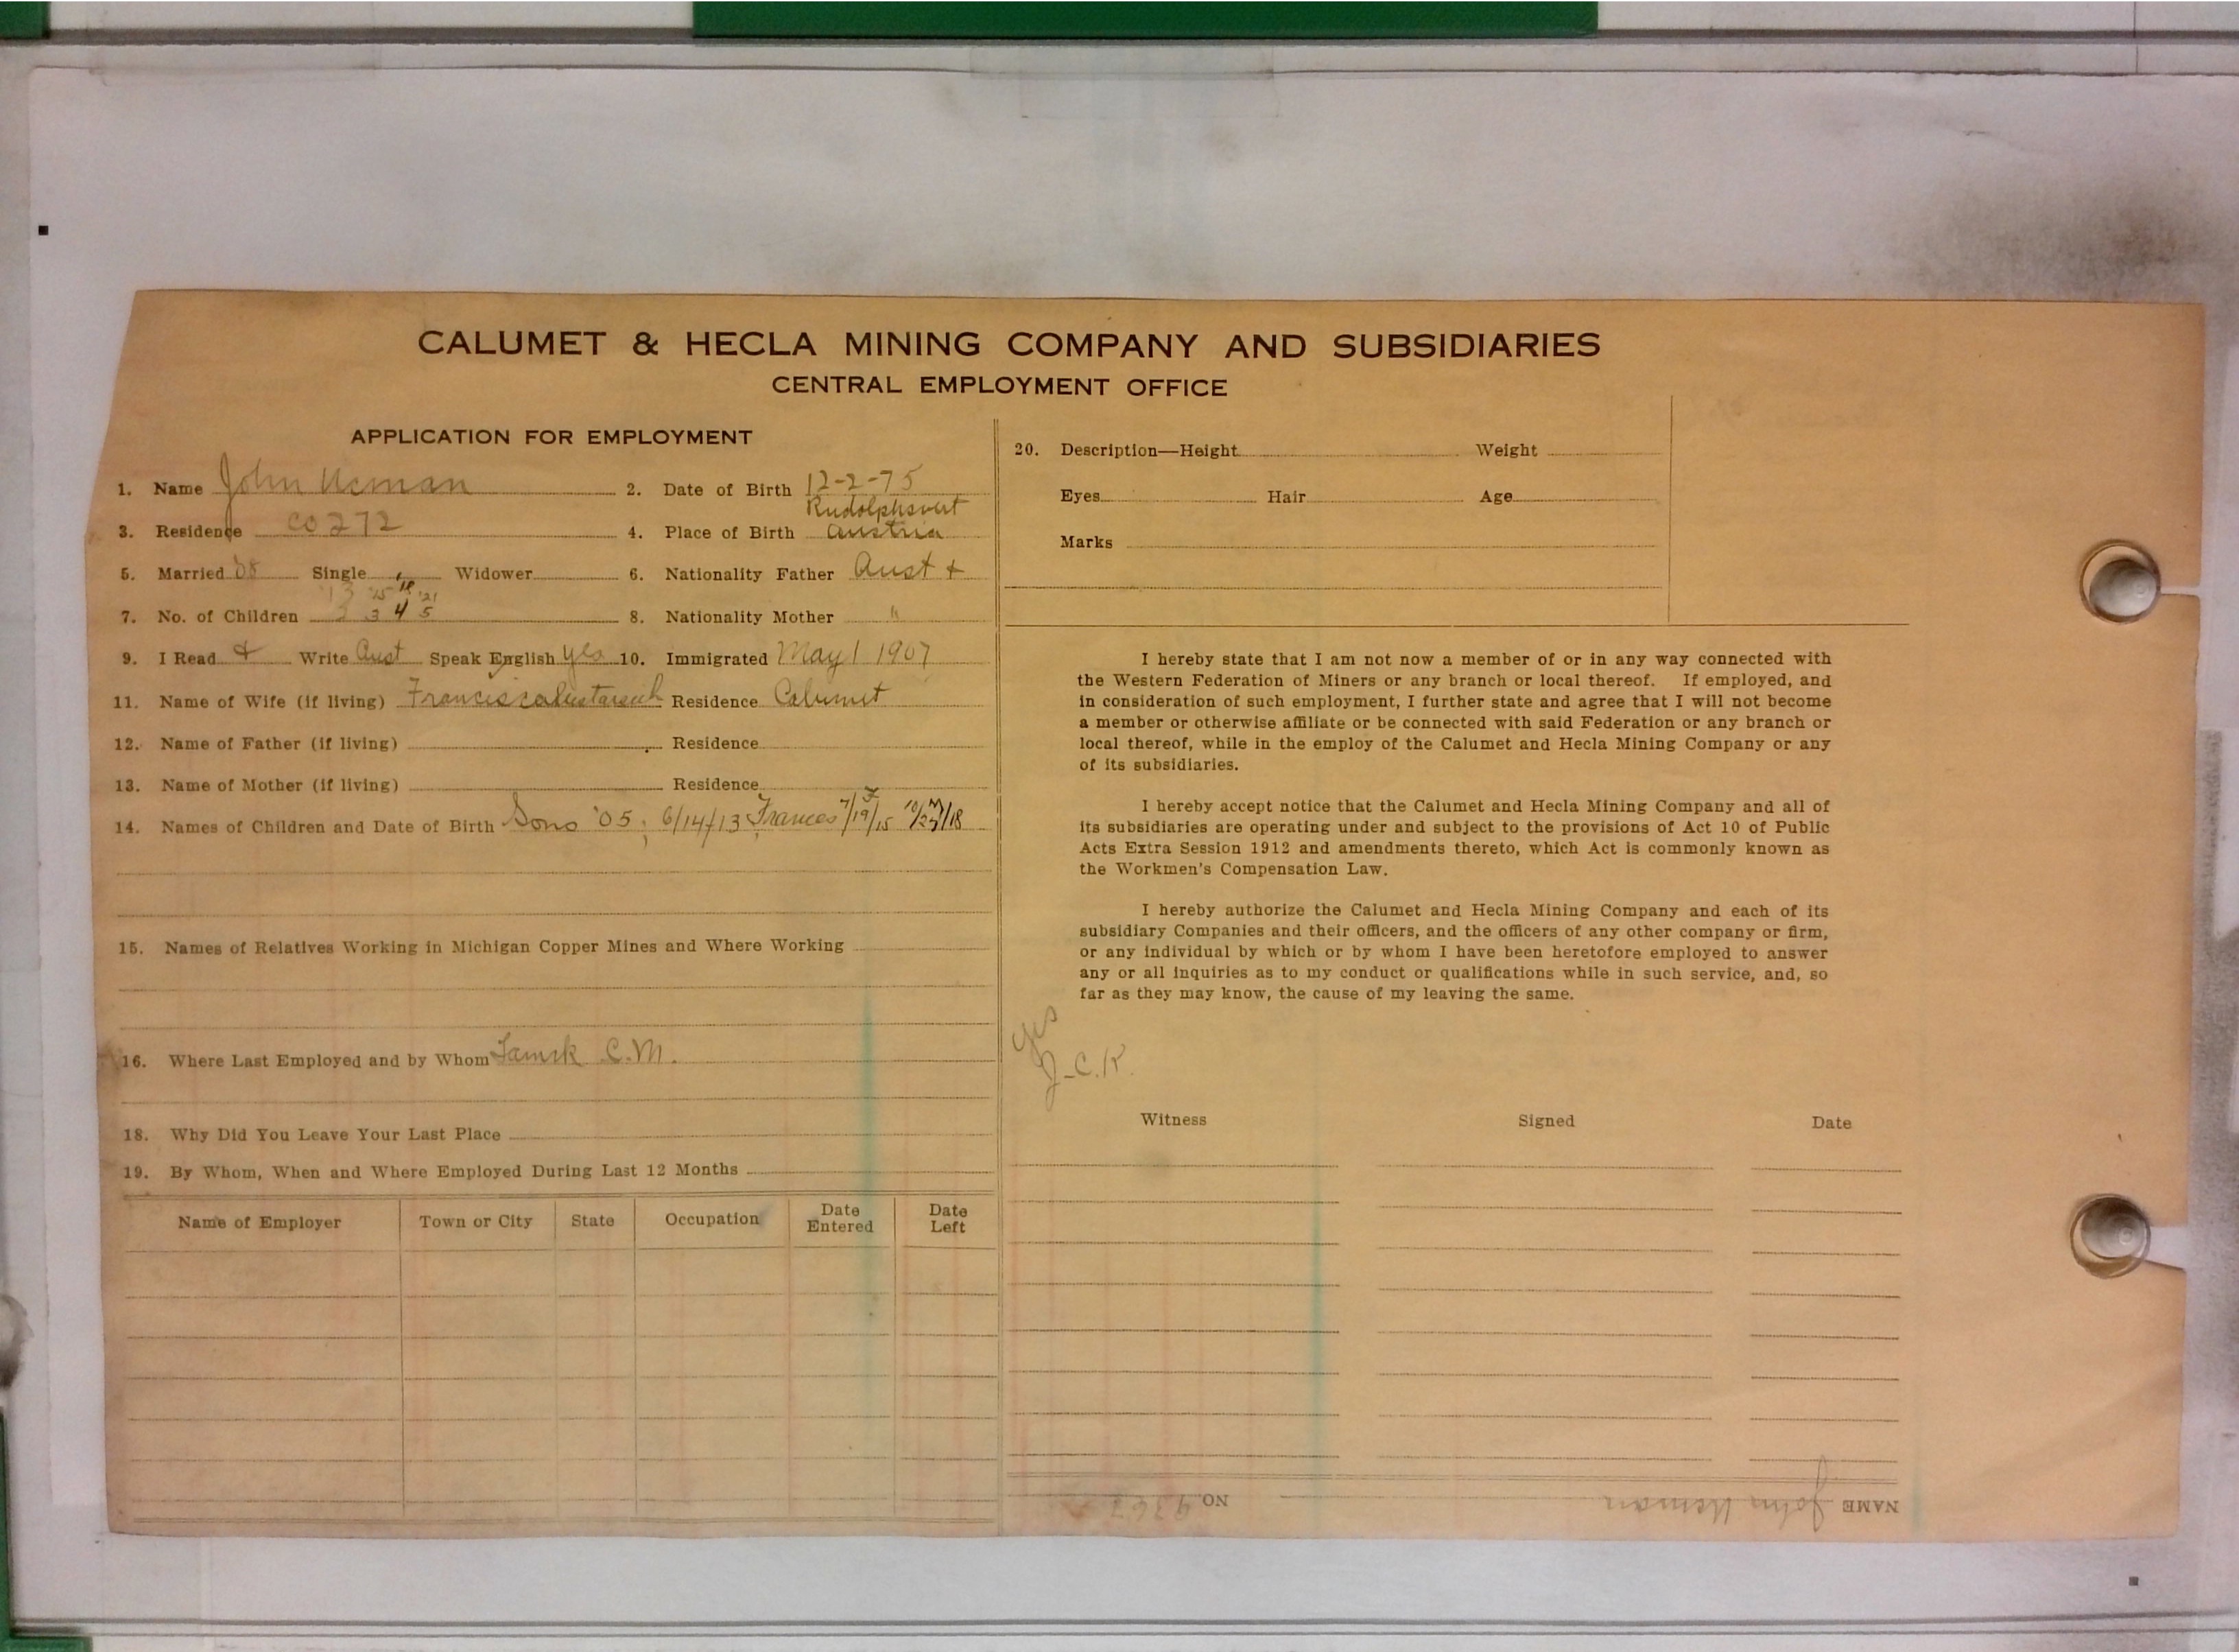 CALUMET & HECLA MINING COMPANY AND SUBSIDIARIES
CENTRAL EMPLOYMENT OFFICE
APPLICATION FOR EMPLOYMENT
1. Name John 2. Date of Birth 12-2-75
3. Residence CO 272 4. Place of Birth Austria
5. Married Single Widower 6. Nationality Father Aust +
'13 '15 '18 '21
7. No. of Children 3 4 5 8. Nationality Mother "
9. I Read + Write Aust Speak English Yes 10. Immigrated May 1 1907
11. Name of Wife (if living) Residence Calumet
12. Name of Father (if living) Residence
13. Name of Mother (if living) Residence
14. Names of Children and Date of Birth Sons '05; 6/14/13 Frances 7/19/15 F 10/27/18 M
15. Names of Relatives Working in Michigan Copper Mines and Where Working
16. Where Last Employed and by Whom C.M.
18. Why Did You Leave Your Last Place
19. By Whom, When and Where Employed During Last 12 Months
Name of Employer Town or City State Occupation Date Entered Date Left
20. Description—Height Weight
Eyes Hair Age
Marks
I hereby state that I am not now a member of or in any way connected with
the Western Federation of Miners or any branch or local thereof. If employed, and
in consideration of such employment, I further state and agree that I will not become
a member or otherwise affiliate or be connected with said Federation or any branch or
local thereof, while in the employ of the Calumet and Hecla Mining Company or any
of its subsidiaries.
I hereby accept notice that the Calumet and Hecla Mining Company and all of
its subsidiaries are operating under and subject to the provisions of Act 10 of Public
Acts Extra Session 1912 and amendments thereto, which Act is commonly known as
the Workmen's Compensation Law.
I hereby authorize the Calumet and Hecla Mining Company and each of its
subsidiary Companies and their officers, and the officers of any other company or firm,
or any individual by which or by whom I have been heretofore employed to answer
any or all inquiries as to my conduct or qualifications while in such service, and, so
far as they may know, the cause of my leaving the same.
Yes
J.C.K.
Witness Signed Date
NAME John NO.